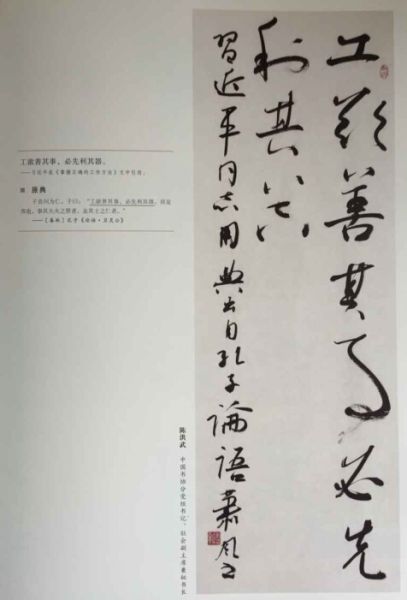 工欲善其事必先
利其器
习近平同志用典出自孔子論語萧风书
工欲善其事，必先利其器。
——习近平在《掌握正确的工作方法》文中引用。
原典
子贡问为仁。子曰："工欲善其事，必先利其器。居是
邦也，事其大夫之贤者，友其士之仁者。"
——[春秋]孔子《论语·卫灵公》
陈洪武 中国书协分党组书记、驻会副主席兼秘书长